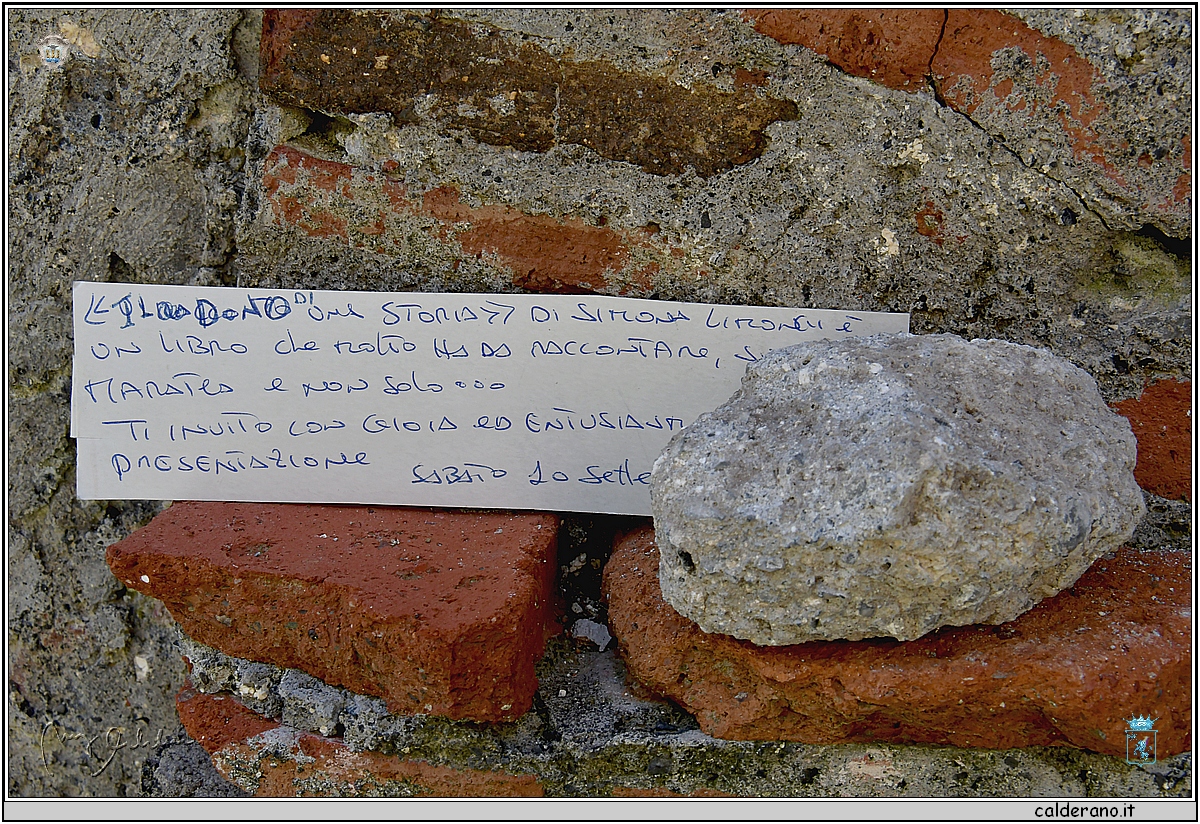 DI
UNA STORIA>> DI SIMONA LIMONGI È
UN LIBRO che MOLTO HA DA RACCONTARE,
MARATEA e NON SOLO...
TI INVITO CON GIOIA ED ENTUSIASM
PRESENTAZIONE
SABATO 10 Sette
calderano.it